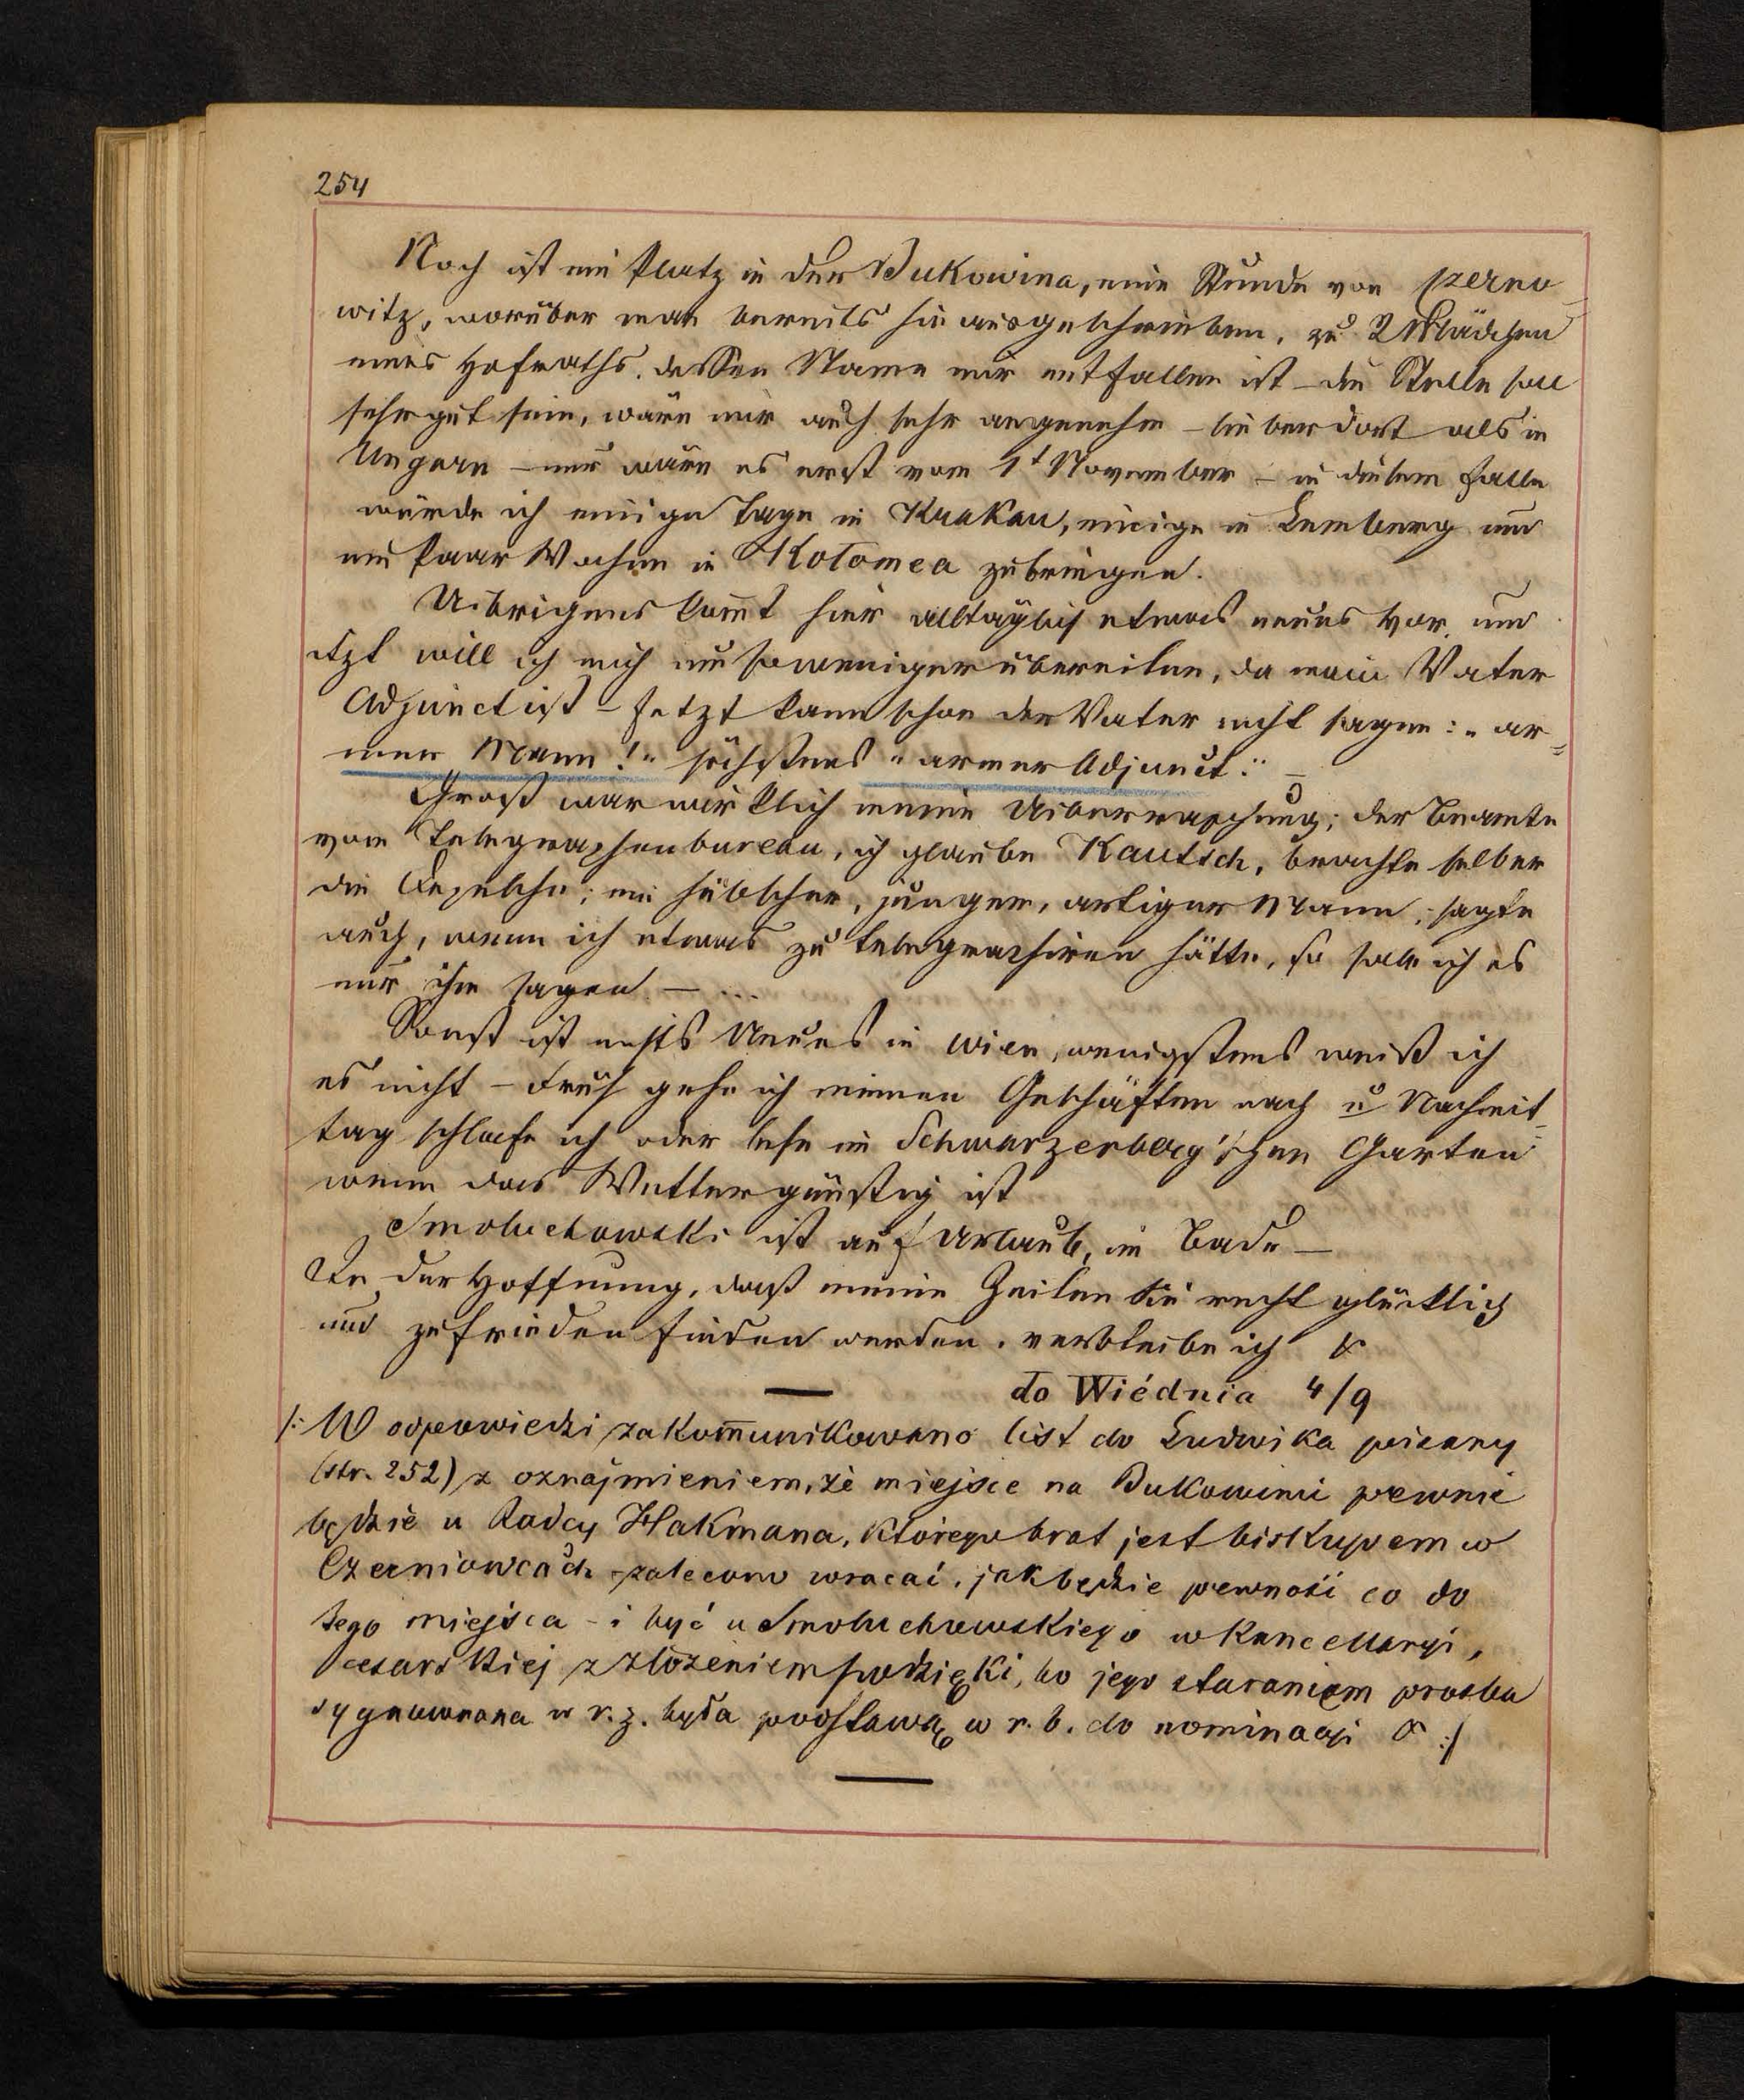 254
Noch ist ein Platz in der Bukowina, eine Stunde von Czerno=
witz, worüber man bereits hin ausgeschrieben, zu 2 Mädchen
eines Hofraths, dessen Name mir entfallen ist – die Stelle soll
sehr gut sein, wäre mir auch sehr angenehm – lieber dort als in
Ungarn – nur wäre es erst vom 1t November – in diesem Falle
würde ich einige Tage in Krakau, einige in Lemberg und
ein Paar Wochen in Kołomea zubringen.
Uibrigens kom̄t hier alltäglich etwas neues vor, und
itzt will ich mich um so weniger übereilen, da mein Vater
Adjunct ist – Jetzt kann schon der Vater nicht sagen: „ar=
mer Mann!" höchstens „armer Adjunct." –
Groß war wirklich meine Uiberraschung; der Beamte
vom Telegraphenbureau, ich glaube Kautsch, brachte selber
die Depesche; ein hübscher, junger, artiger Mann; sagte
auch, wenn ich etwas zu telegraphiren hätte, so soll ich es
nur ihm sagen – ...
Sonst ist nichts Neues in Wien, wenigstens weiß ich
es nicht – Früh gehe ich meinen Geschäften nach u Nachmit=
tag schlafe ich oder lese im Schwarzenberg'schen Garten
wenn das Wetter günstig ist
Smoluchowski ist auf Urlaub, im Bade –
In der Hoffnung, daß meine Zeilen Sie recht glücklich
und zufrieden finden werden, verbleibe ich &
do Wiédnia 4/9
/: W odpowiedzi zakom̄unikowano list do Ludwika pisany
(str. 252) z oznajmieniem, że miejsce na Bukowinie pewnie
będzie u Radcy Hakmana, którego brat jest biskupem w
Czerniowcach – zalecono wracać, jak będzie pewność co do
tego miejsca – i być u Smoluchowskiego w kancellaryi,
cesarskiej z złożeniem podzięki, bo jego staraniem prośba
sygnowana w r. z. była podstawą w r. b. do nominacyi & :/